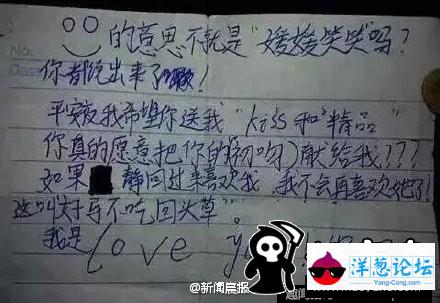 No.
Date
的意思不就是“媛媛笑笑”吗？
你都说出来了啊！
平安夜我希望你送我“kiss和“精品”
你真的愿意把你的初吻献给我???
如果 静回过来喜欢我，我不会再喜欢她了!
这叫“好马不吃回头草”。
我是 Love
@新闻晨报
洋葱论坛
Yang-Cong.com